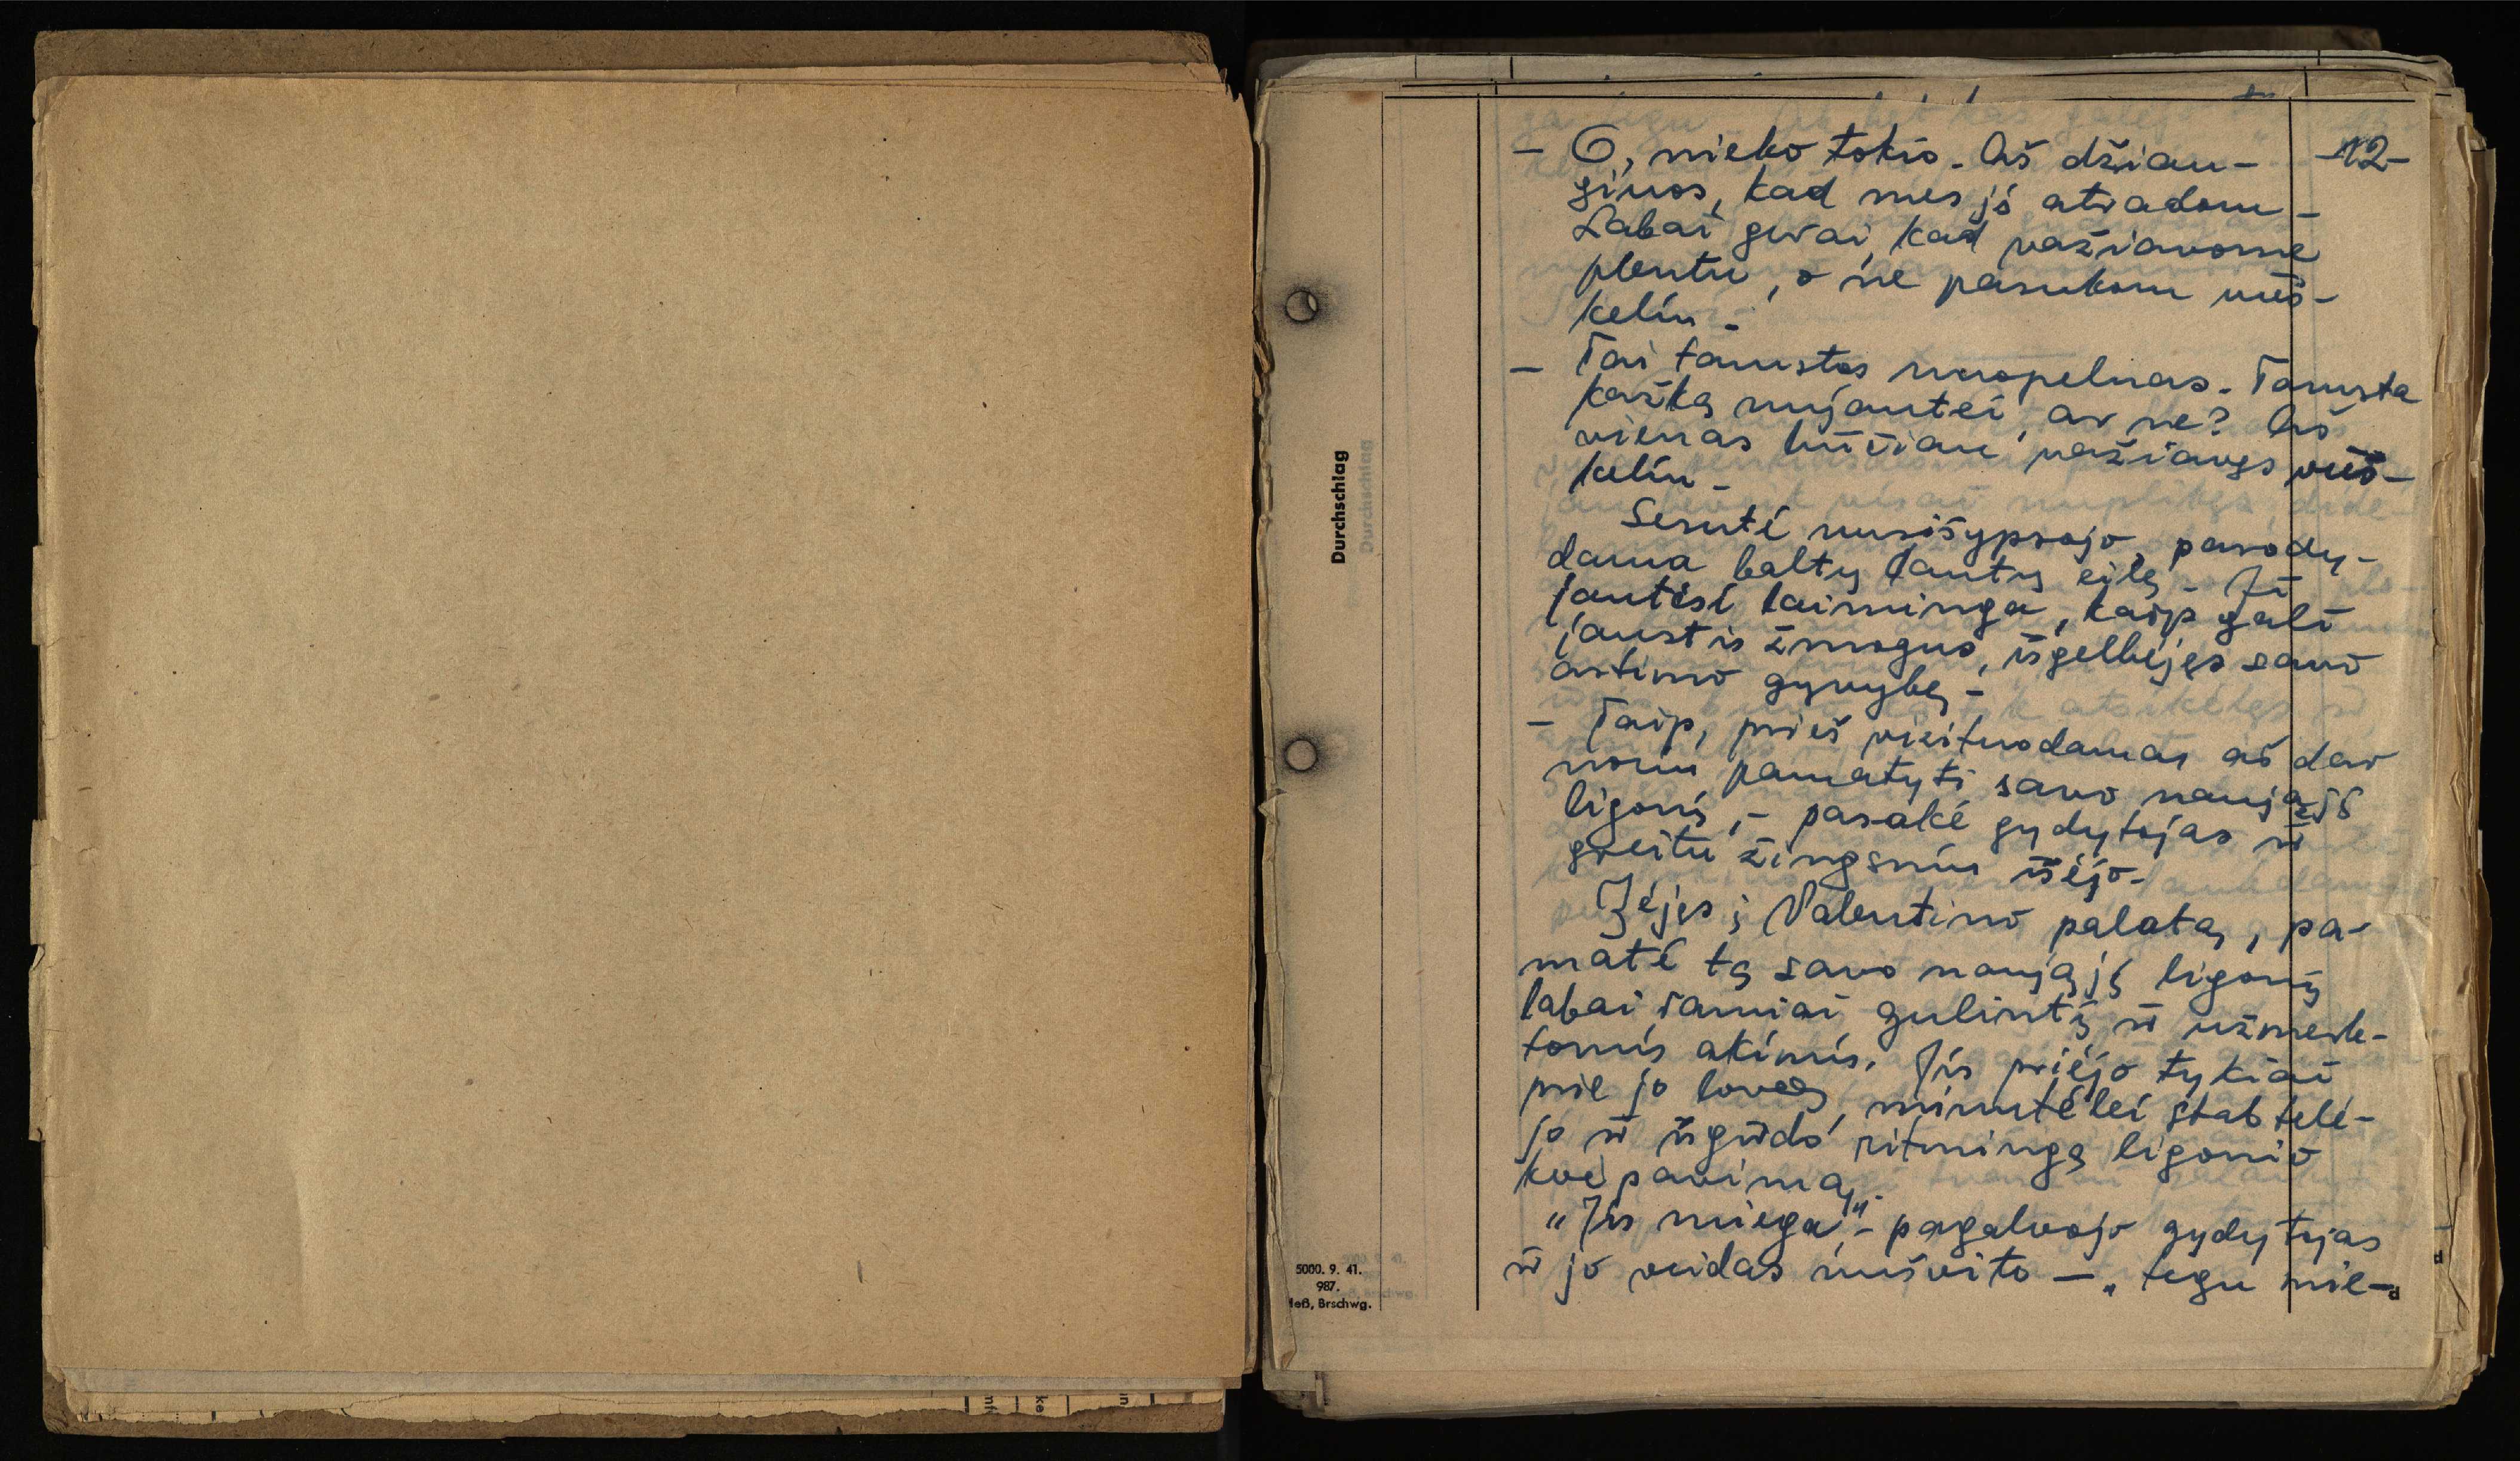 -12-
– O, nieko tokio. Aš džiau-
giuos, kad mes jį atradom.
Labai gerai, kad važiavome
plentu, o ne pasukom vieš-
kelin.
– Tai tamstos nuopelnas. Tamsta
kažką nujautei, ar ne? Aš
vienas būčiau važiavęs vieš-
keliu.
Sesutė nusišypsojo, parody-
dama baltų dantų eilę. Ji
jautėsi laiminga, kaip gali
jaustis žmogus, išgelbėjęs savo
artimo gyvybę.
– Taip, prieš vizituodamas aš dar
noriu pamatyti savo naująjį
ligonį, – pasakė gydytojas ir
greitu žingsniu išėjo.
Įėjęs į Valentino palatą, pa-
matė tą savo naująjį ligonį
labai ramiai gulintį ir užmerk-
tomis akimis. Jis priėjo tykiai
prie jo lovos, minutėlei stabtelė-
jo ir išgirdo ritmingą ligonio
kvėpavimą.
"Jis miega", – pagalvojo gydytojas
ir jo veidas nušvito – "tegu mie-
Durchschlag
5000. 9. 41.
987.
Brschwg.